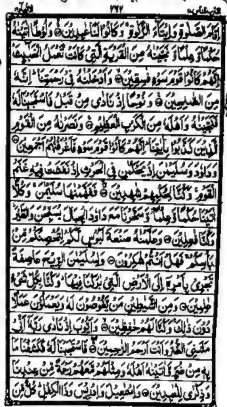 اِقَامَ الصَّلٰوةِ وَاِيْتَآءَ الزَّكٰوةِ ۚ وَكَانُوْا لَنَا عٰبِدِيْنَ ۙ وَلُوْطًا اٰتَيْنٰهُ
حُكْمًا وَّعِلْمًا وَّنَجَّيْنٰهُ مِنَ الْقَرْيَةِ الَّتِيْ كَانَتْ تَّعْمَلُ الْخَبٰٓئِثَ ؕ
اِنَّهُمْ كَانُوْا قَوْمَ سَوْءٍ فٰسِقِيْنَ ۙ وَاَدْخَلْنٰهُ فِيْ رَحْمَتِنَا ؕ اِنَّهٗ
مِنَ الصّٰلِحِيْنَ ۙ وَنُوْحًا اِذْ نَادٰى مِنْ قَبْلُ فَاسْتَجَبْنَا لَهٗ
فَنَجَّيْنٰهُ وَاَهْلَهٗ مِنَ الْكَرْبِ الْعَظِيْمِ ۚ وَنَصَرْنٰهُ مِنَ الْقَوْمِ
الَّذِيْنَ كَذَّبُوْا بِاٰيٰتِنَا ؕ اِنَّهُمْ كَانُوْا قَوْمَ سَوْءٍ فَاَغْرَقْنٰهُمْ اَجْمَعِيْنَ
وَدَاوٗدَ وَسُلَيْمٰنَ اِذْ يَحْكُمٰنِ فِي الْحَرْثِ اِذْ نَفَشَتْ فِيْهِ غَنَمُ
الْقَوْمِ ۚ وَكُنَّا لِحُكْمِهِمْ شٰهِدِيْنَ ۙ فَفَهَّمْنٰهَا سُلَيْمٰنَ ۚ وَكُلًّا
اٰتَيْنَا حُكْمًا وَّعِلْمًا ؗ وَّسَخَّرْنَا مَعَ دَاوٗدَ الْجِبَالَ يُسَبِّحْنَ وَالطَّيْرَ ؕ
وَكُنَّا فٰعِلِيْنَ وَعَلَّمْنٰهُ صَنْعَةَ لَبُوْسٍ لَّكُمْ لِتُحْصِنَكُمْ مِّنْۢ
بَاْسِكُمْ ۚ فَهَلْ اَنْتُمْ شٰكِرُوْنَ وَلِسُلَيْمٰنَ الرِّيْحَ عَاصِفَةً
تَجْرِيْ بِاَمْرِهٖٓ اِلَى الْاَرْضِ الَّتِيْ بٰرَكْنَا فِيْهَا ؕ وَكُنَّا بِكُلِّ شَيْءٍ
عٰلِمِيْنَ وَمِنَ الشَّيٰطِيْنِ مَنْ يَّغُوْصُوْنَ لَهٗ وَيَعْمَلُوْنَ عَمَلًا
دُوْنَ ذٰلِكَ ۚ وَكُنَّا لَهُمْ حٰفِظِيْنَ ۙ وَاَيُّوْبَ اِذْ نَادٰى رَبَّهٗٓ اَنِّيْ
مَسَّنِيَ الضُّرُّ وَاَنْتَ اَرْحَمُ الرّٰحِمِيْنَ ۚ فَاسْتَجَبْنَا لَهٗ فَكَشَفْنَا مَا
بِهٖ مِنْ ضُرٍّ وَّاٰتَيْنٰهُ اَهْلَهٗ وَمِثْلَهُمْ مَّعَهُمْ رَحْمَةً مِّنْ عِنْدِنَا
وَذِكْرٰى لِلْعٰبِدِيْنَ وَاِسْمٰعِيْلَ وَاِدْرِيْسَ وَذَا الْكِفْلِ ؕ كُلٌّ مِّنَ